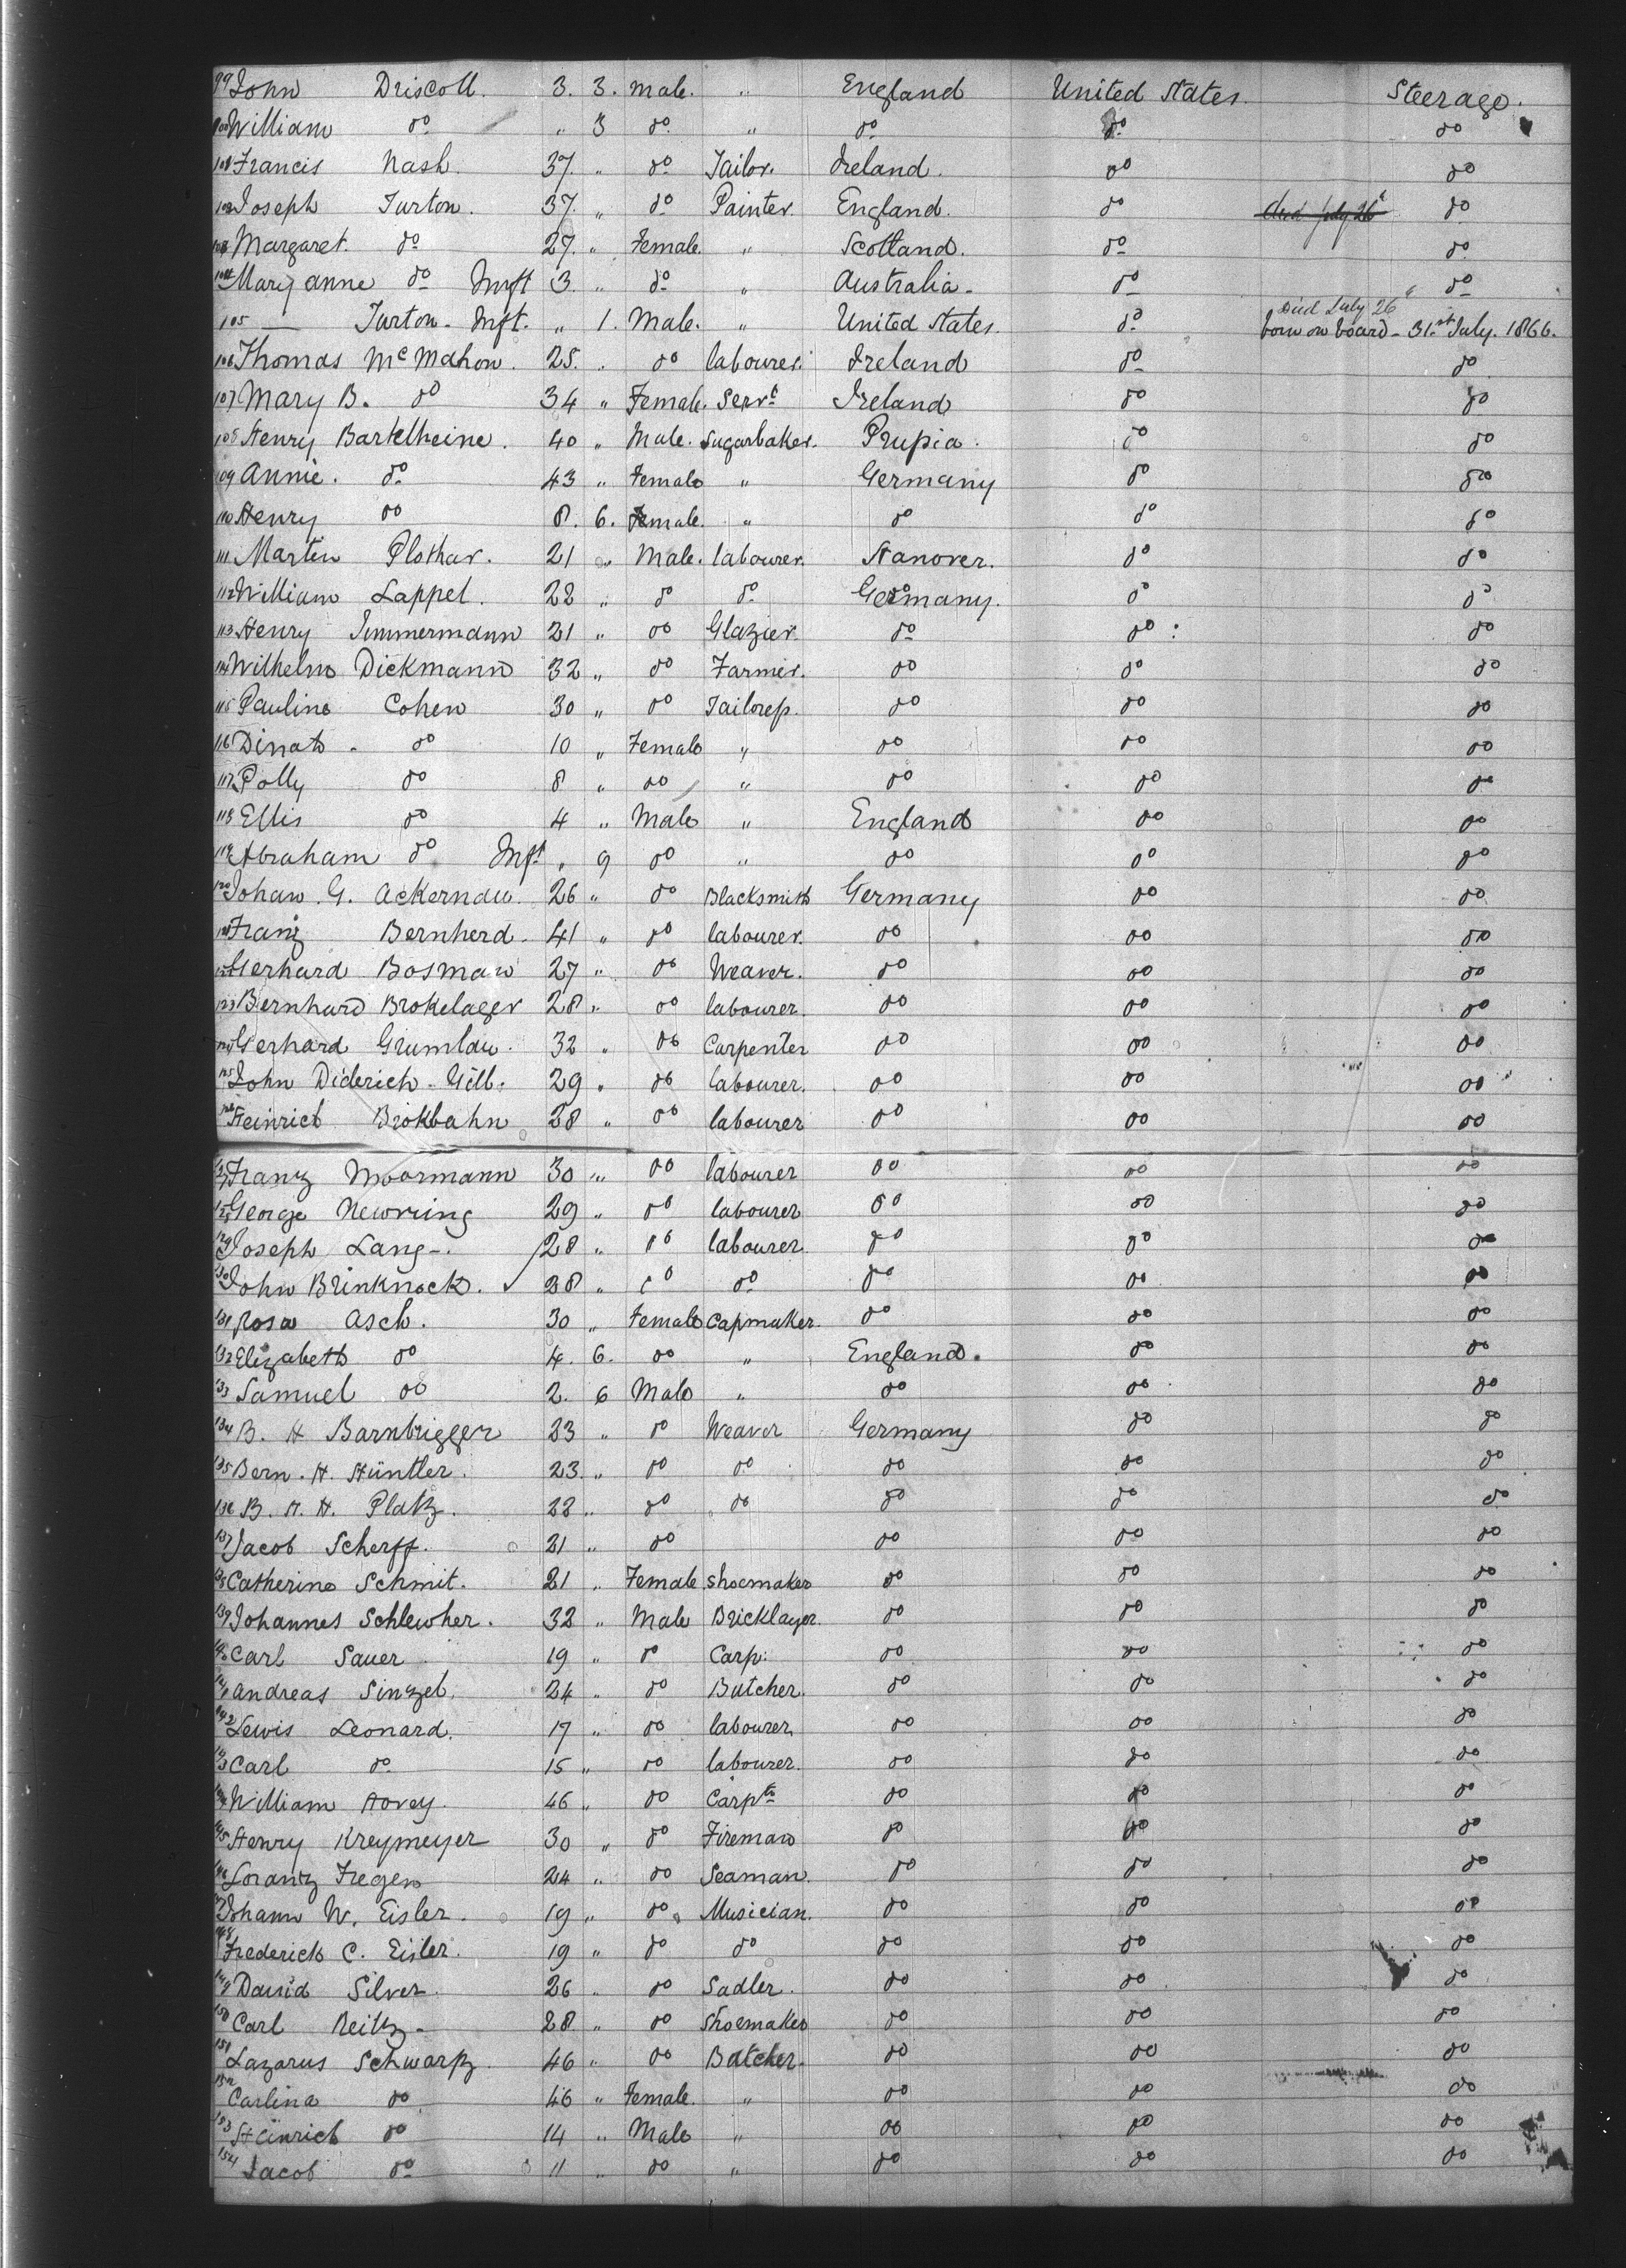 99 John Driscoll. 3. 3. Male. " England United States. Steerage.
100 William do " 3 do " do do do
101 Francis Nash. 37. " do Tailor. Ireland. do do
102 Joseph Turton. 37. " do Painter. England. do died July 26th do
103 Margaret. do 27. " Female. " Scotland. do do
104 Mary anne do Inft 3. " do " Australia. do do
Died July 26th
105 — Turton. Inft. " 1. Male. " United States. do born on board - 31st July. 1866.
106 Thomas McMahon. 25. " do labourer. Ireland do do
107 Mary B. do 34 " Female. Servt Ireland do do
108 Henry Bartelheine. 40 " Male. Sugarbaker. Prussia. do do
109 Annie. do 43 " Female " Germany do do
110 Henry do 8. 6. Female. " do do do
111 Martin Plothar. 21 " Male. labourer. Hanover. do do
112 William Lappel. 22 " do do Germany. do do
113 Henry Timmermann 21 " do Glazier. do do do
114 Wilhelm Dickmann 32 " do Farmer. do do do
115 Pauline Cohen 30 " do Tailoress. do do do
116 Dinah - do 10 " Female " do do do
117 Polly do 8 " do " do do do
118 Ellis do 4 " Male " England do do
119 Abraham do Inft " 9 do " do do do
120 Johan. G. Ackernau. 26 " do Blacksmith Germany do do
121 Franz Bernherd. 41 " do labourer. do do do
122 Gerhard Bosman 27 " do Weaver. do do do
123 Bernhard Brokelager 28 " do labourer. do do do
124 Gerhard Grumlau. 32 " do Carpenter do do do
125 John Diderich - Gill. 29 " do labourer. do do do
126 Heinrich Brokbahn 28 " do labourer do do do
127 Franz Moormann 30 " do labourer do do do
128 George Newring 29 " do labourer do do do
129 Joseph Lang -. 28 " do labourer. do do do
130 John Brinknock. 28 " do do do do do
131 Rosa Asch. 30 " Female Capmaker. do do do
132 Elizabeth do 4. 6. do " England. do do
133 Samuel do 2. 6 Male " do do do
134 B. H Barnbrigger 23 " do Weaver Germany do do
135 Bern. H. Hüntler. 23. " do do do do do
136 B. H. H. Platz. 22 " do do do do do
137 Jacob Scherff. 21 " do do do do
138 Catherine Schmit. 21 " Female Shoemaker do do do
139 Johannes Schlewher. 32 " Male Bricklayer. do do do
140 Carl Sauer 19 " do Carp: do do do
141 Andreas Sinzel. 24 " do Butcher. do do do
142 Lewis Leonard. 17 " do labourer. do do do
143 Carl do 15 " do labourer. do do do
144 William Hovey. 46 " do Carptr do do do
145 Henry Kreymeyer 30 " do Fireman do do do
146 Lorantz Fregen 24 " do Seaman. do do do
147 Johann W. Eisler. 19 " do Musician. do do do
148 Frederich C. Eisler. 19 " do do do do do
149 David Silver. 26 " do Sadler. do do do
150 Carl Reitz - 28 " do Shoemaker do do do
151 Lazarus Schwartz 46 " do Butcher. do do do
152 Carlina do 46 " Female. " do do do
153 Heinrich do 14 " Male " do do do
154 Jacob do 11 " do " do do do